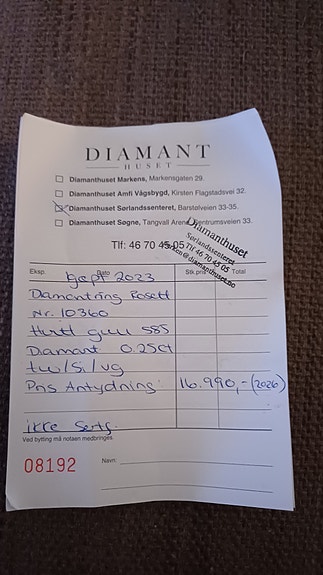 DIAMANT
HUSET
Diamanthuset Markens, Markensgaten 29.
Diamanthuset Amfi Vågsbygd, Kirsten Flagstadsvei 32.
Diamanthuset Sørlandssenteret, Barstølveien 33-35.
Diamanthuset Søgne, Tangvall Arena, Sentrumsveien 33.
Tlf: 46 70 45 05
Diamanthuset
Sørlandssenteret
Tlf 46 70 45 05
@diamanthuset.no
Eksp. Dato Stk.pris Total
kjøpt 2023
Diamantring Rosett
Nr. 10360
Hvitt gull 585
Diamant 0.25ct
tw/Si/vg
Pris Antydning: 16.990,- (2026)
ikke Sertf.
Ved bytting må notaen medbringes.
08192 Navn: